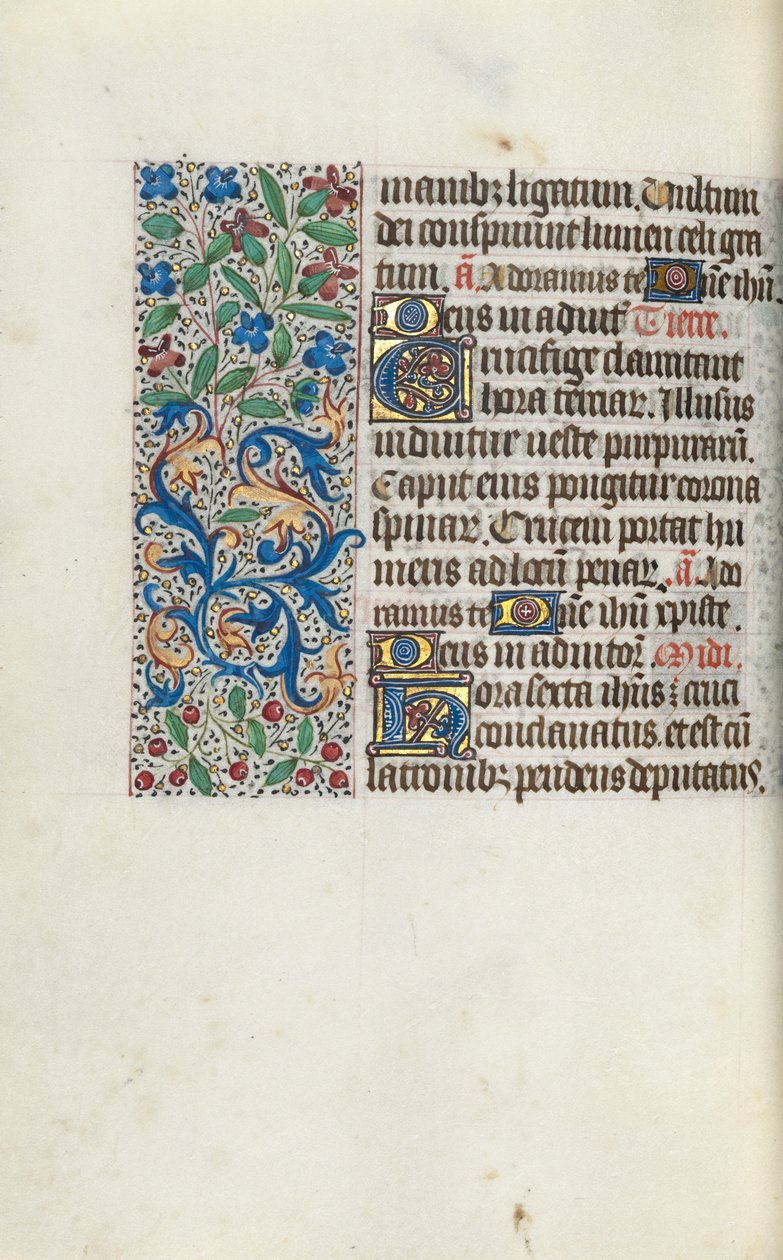 manibꝫ ligatum. Vultum
dei conspuunt lumen celi gra
tum. ā. Adoramus te Dn̄e ihū
Deus in adiut᷑ Tierce.
Crucifige clamitant
hora terciaꝝ. Illusus
induitur ueste purpuraꝝ.
Caput eius pongitur corona
spinaꝝ. Crucem portat hu
meris ad locū penaꝝ. ā. Ado
ramus te Dn̄e ihū xpiste.
Deus in adiutoꝝ. Midi.
Hora sexta ihūs ē cruci
conclauatus. et est cū
latronibꝫ pendens deputatus.